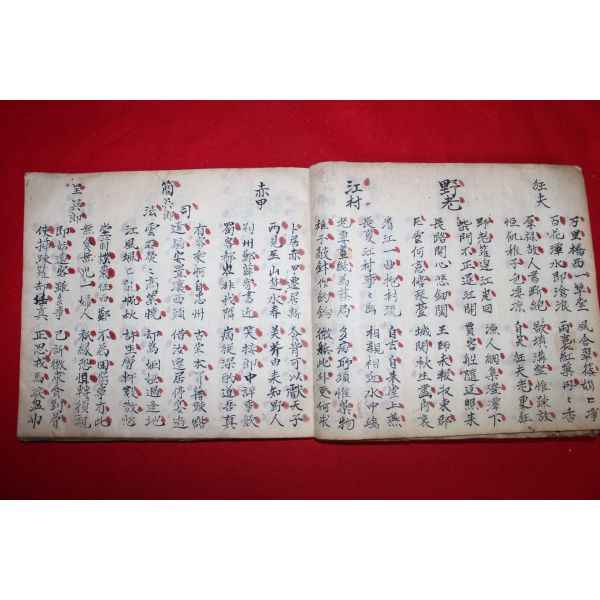 狂夫
万里橋西一草堂
百花潭水即滄浪
風含翠篠娟〻淨
雨裛紅蕖冉〻香
厚祿故人書斷絕
恒飢稚子色凄凉
欲填溝壑惟踈放
自笑狂夫老更狂
野老
野老籬邊江岸回
柴門不正逐江開
漁人網集澄潭下
賈客船隨返照來
長路關心悲劒閣
片雲何意傍琴臺
王師未報收東郡
城闕秋生畫角哀
江村
清江一曲抱村流
長夏江村事〻幽
自去自來堂上燕
相親相近水中鷗
老妻畫紙為碁局
稚子敲針作釣鉤
多病所須惟藥物
微軀此外更何求
赤甲
卜居赤甲遷居新
兩見巫山楚水春
炙背可以獻天子
美芹由來知野人
荊州鄭薛寄書近
蜀客郗岑非我隣
笑接郎中評事飲
病從深酌道吾真
簡吳郎司法
有客乘舸自忠州
遣騎安置瀼西頭
古堂本買藉踈豁
借汝遷居停宴遊
雲石熒〻高葉曉
江風颯〻亂帆秋
却為姻婭過逢地
許坐曾軒數散愁
呈吳郎
堂前撲棗任西鄰
無食無兒一婦人
不為困窮寧有此
祗緣恐懼轉須親
即防遠客雖多事
使插踈籬却任真
已訴徵求貧到骨
正思戎馬淚盈巾